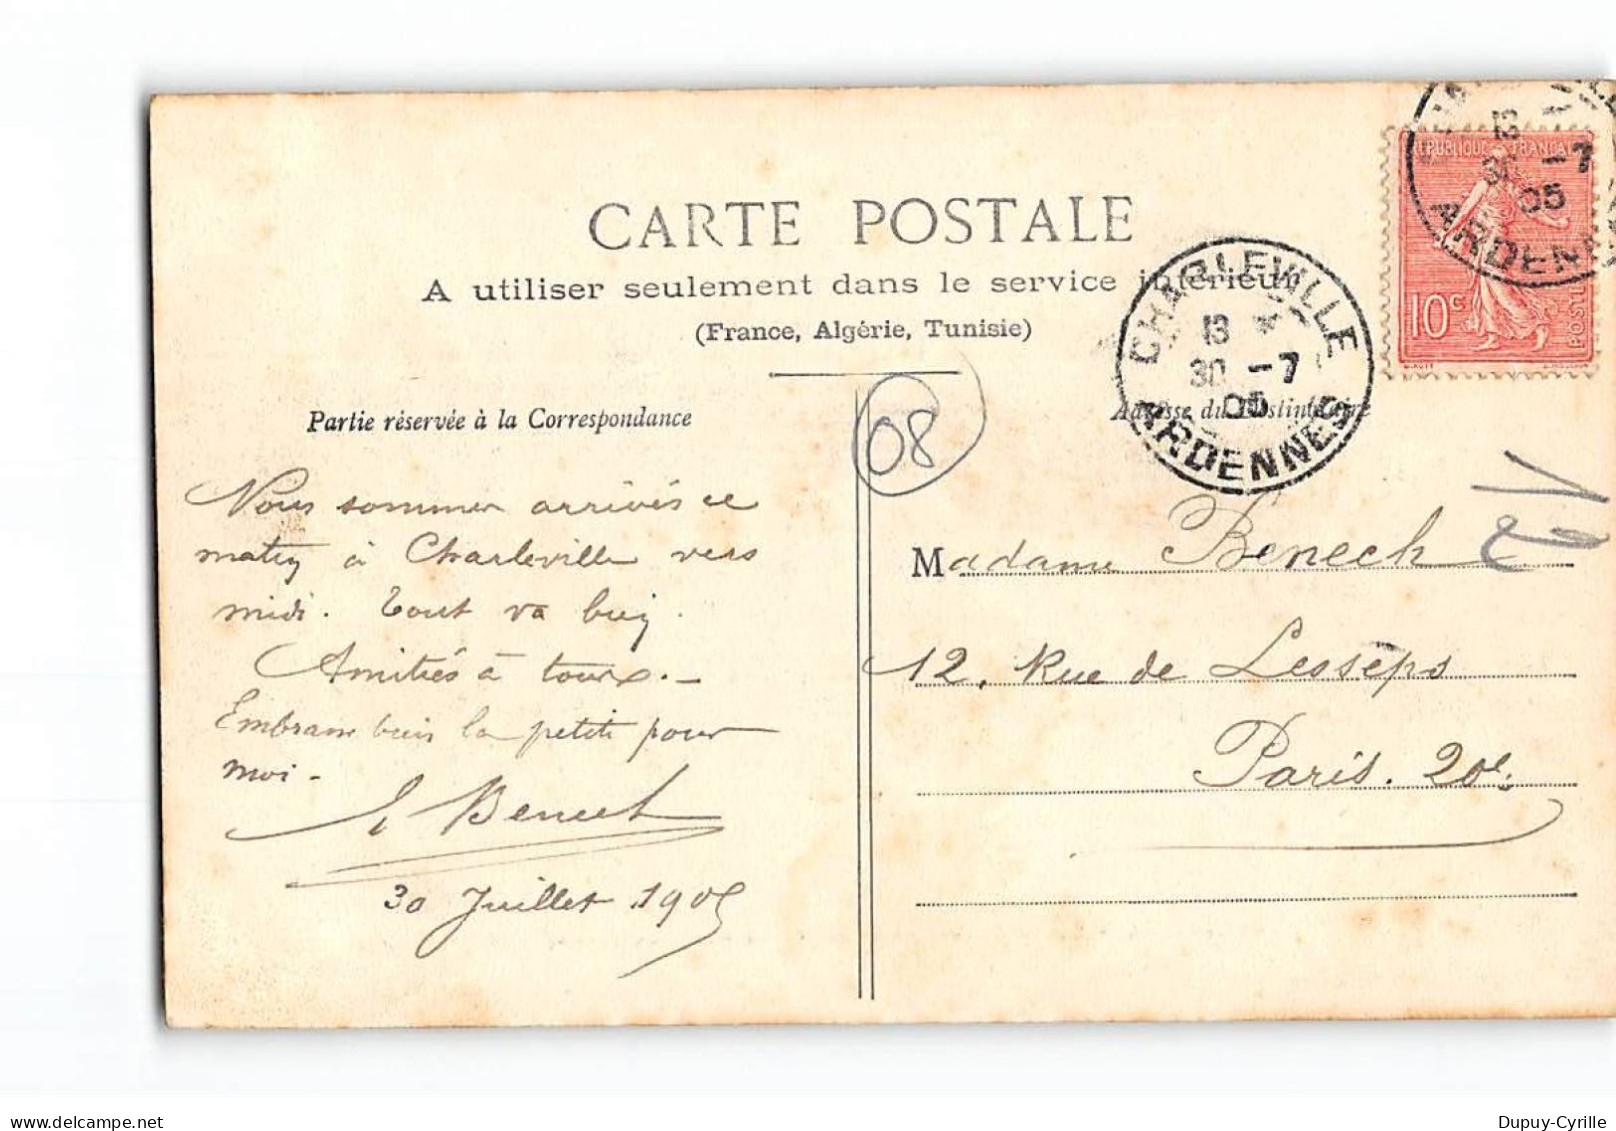 CARTE POSTALE
A utiliser seulement dans le service intérieur
(France, Algérie, Tunisie)
Partie réservée à la Correspondance
Nous sommes arrivés ce
matin à Charleville vers
midi. Tout va bien.
Amitiés à tous. –
Embrasse bien la petite pour
moi –
E Benech
30 Juillet 1905
08
CHARLEVILLE
13
30 -7
05
ARDENNES
Adresse du Destinataire
Madame Benech
12, Rue de Lesseps
Paris. 20e.
REPUBLIQUE FRANÇAISE
10c
POSTES
13
30 -7
05
ARDENNES
delcampe.net
Dupuy-Cyrille